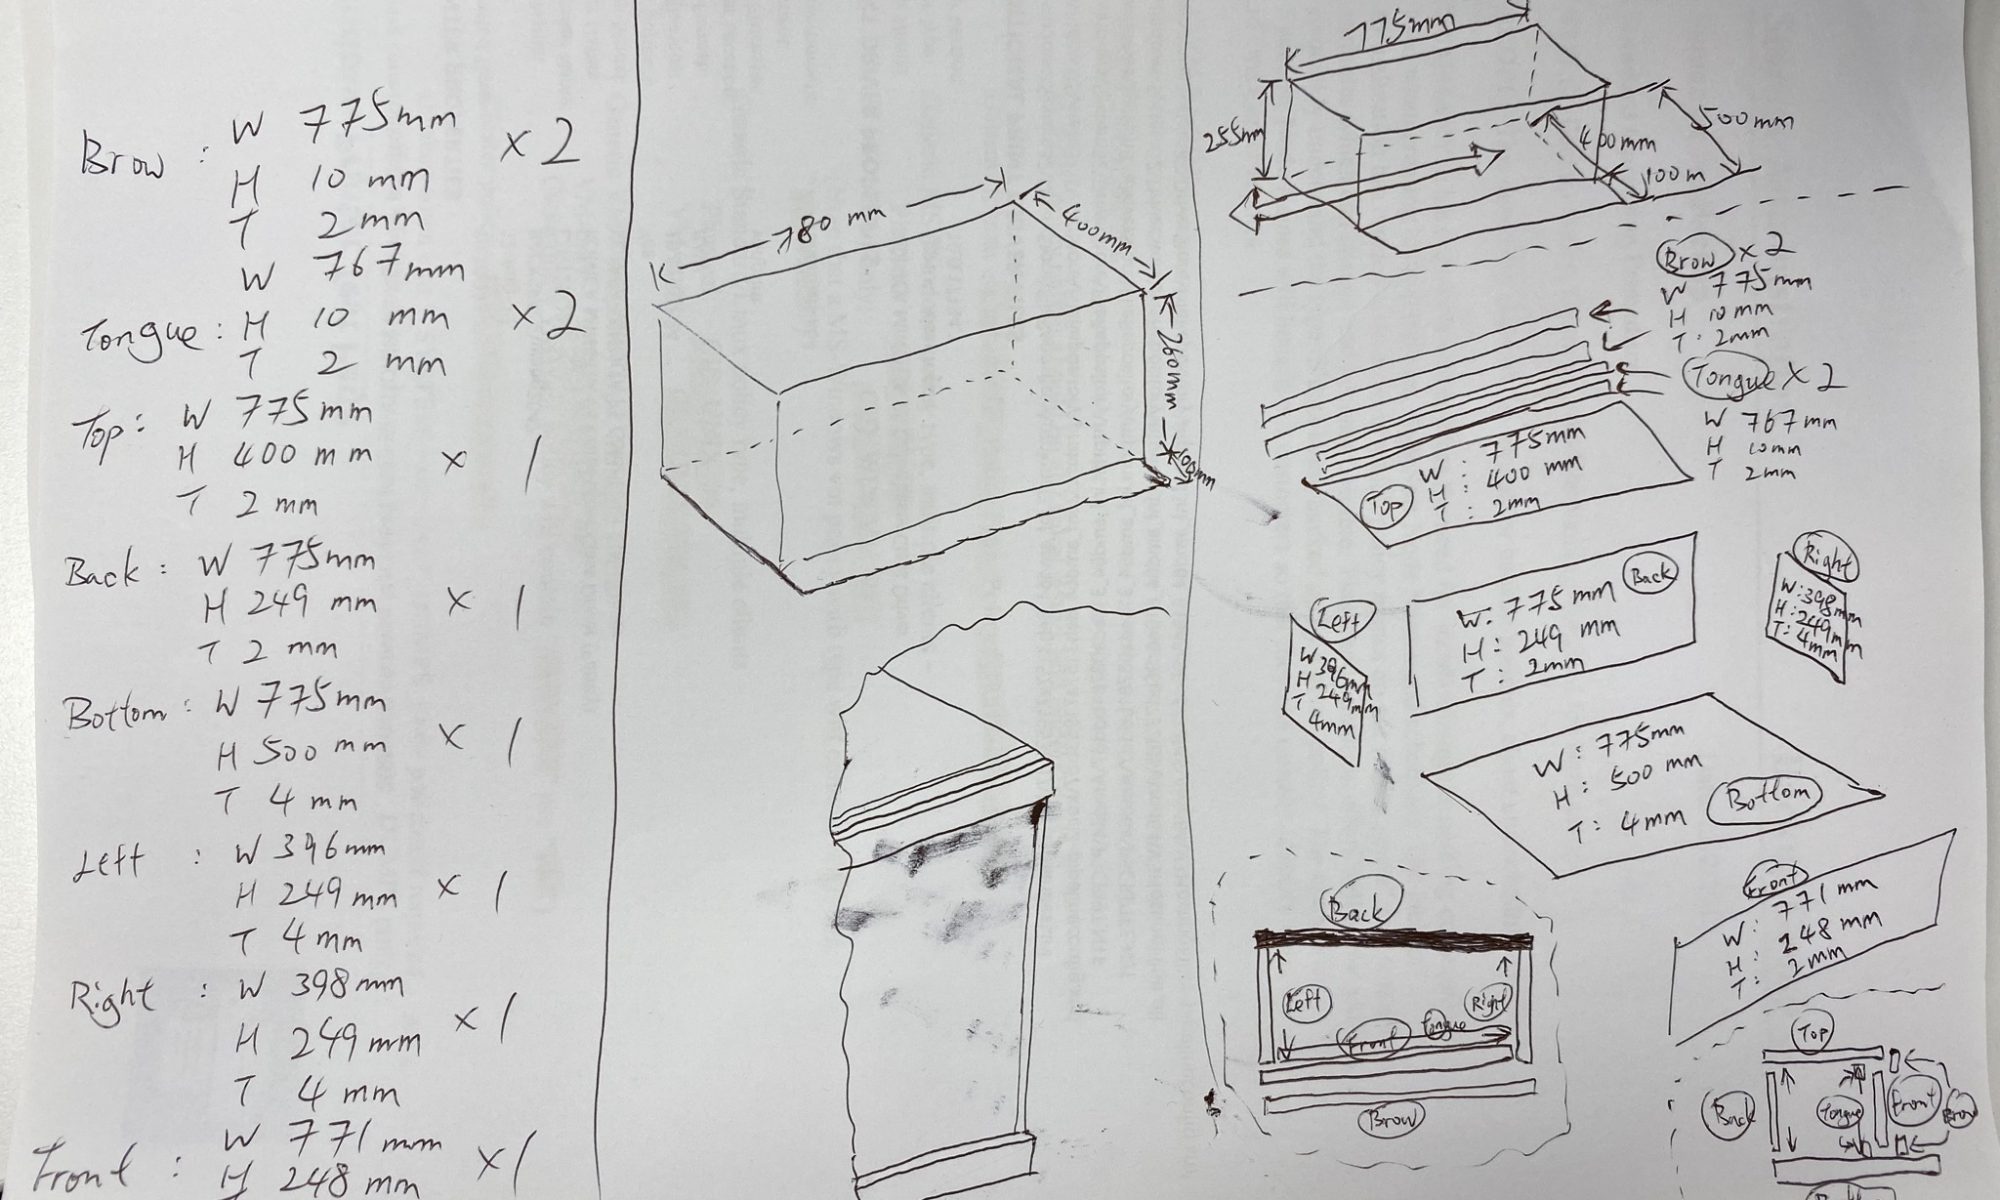 Brow : W 775mm
H 10 mm × 2
T 2mm
Tongue : W 767mm
H 10 mm × 2
T 2 mm
Top : W 775mm
H 400 mm × 1
T 2 mm
Back : W 775mm
H 249 mm × 1
T 2 mm
Bottom : W 775mm
H 500 mm × 1
T 4 mm
Left : W 396mm
H 249 mm × 1
T 4 mm
Right : W 398mm
H 249 mm × 1
T 4 mm
Front : W 771mm
H 248 mm × 1
780 mm
400mm
260mm
100mm
775mm
255mm
400mm
500mm
100m
Brow × 2
W 775mm
H 10mm
T : 2mm
Tongue × 2
W 767mm
H 10mm
T 2mm
Top
W : 775mm
H : 400 mm
T : 2mm
Back
W : 775mm
H : 249 mm
T : 2mm
Left
W 396mm
H 249mm
T 4mm
Right
W : 398mm
H : 249mm
T : 4mm
W : 775mm
H : 500 mm
T : 4mm
Bottom
Front
W : 771 mm
H : 248 mm
T : 2mm
Back
Left
Right
Front
Tongue
Brow
Top
Back
Tongue
Front
Brow